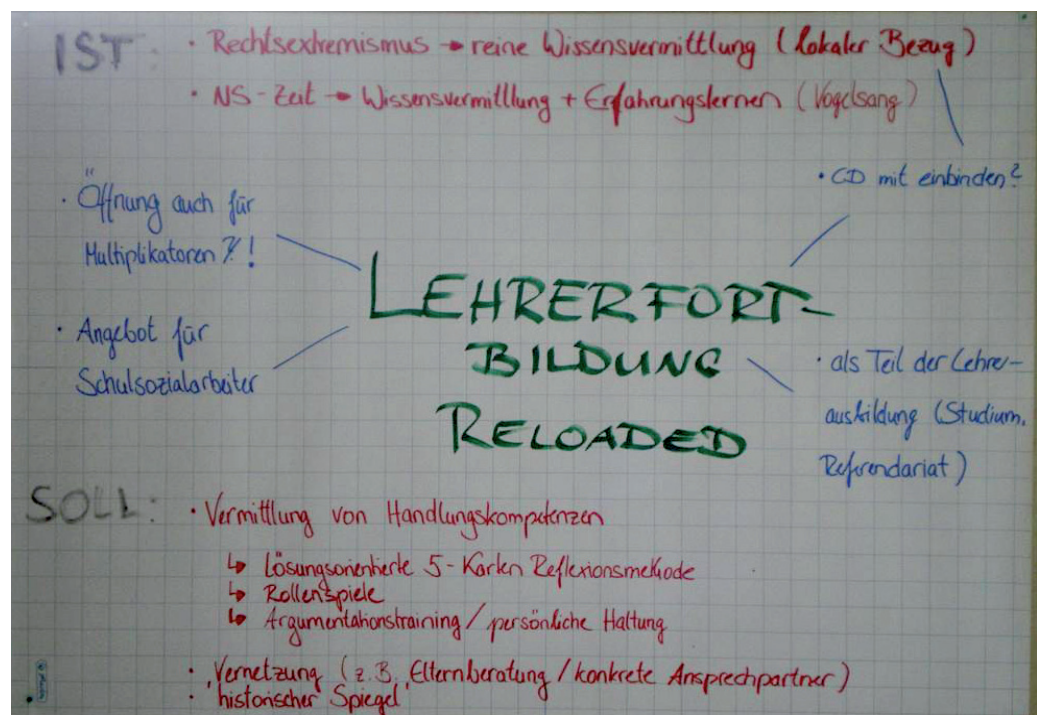 IST: · Rechtsextremismus → reine Wissensvermittlung (lokaler Bezug)
· NS-Zeit → Wissensvermittlung + Erfahrungslernen (Vogelsang)
· CD mit einbinden?
· Öffnung auch für
Multiplikatoren ?!
· Angebot für
Schulsozialarbeiter
LEHRERFORT-
BILDUNG
RELOADED
· als Teil der Lehrer-
ausbildung (Studium,
Referendariat)
SOLL: · Vermittlung von Handlungskompetenzen
↳ Lösungsorientierte 5-Karten Reflexionsmethode
↳ Rollenspiele
↳ Argumentationstraining / persönliche Haltung
· Vernetzung (z.B. Elternberatung / konkrete Ansprechpartner)
· 'historischer Spiegel'